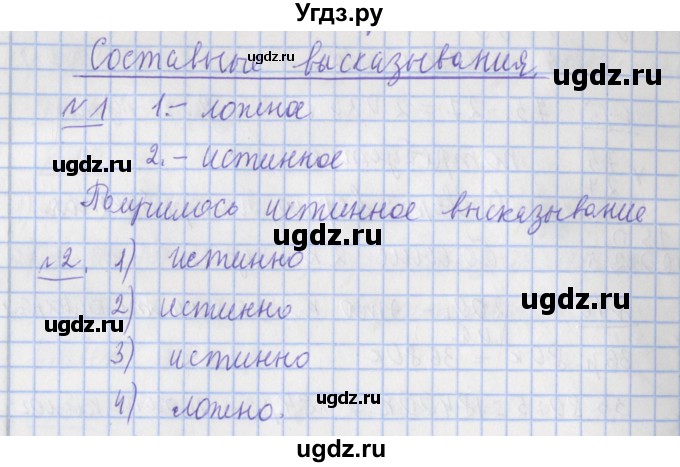 Угдз.ру
Составные высказывания.
ugdz.ru
ugdz.ru
№1 1.- ложное
ugdz.ru
ugdz.ru
2. - истинное
Получилось истинное высказывание
ugdz.ru
№2. 1) истинно
ugdz.ru
2) истинно
ugdz.ru
3) истинно
4) ложно.
ugdz.ru
ugdz.ru
ugdz.ru